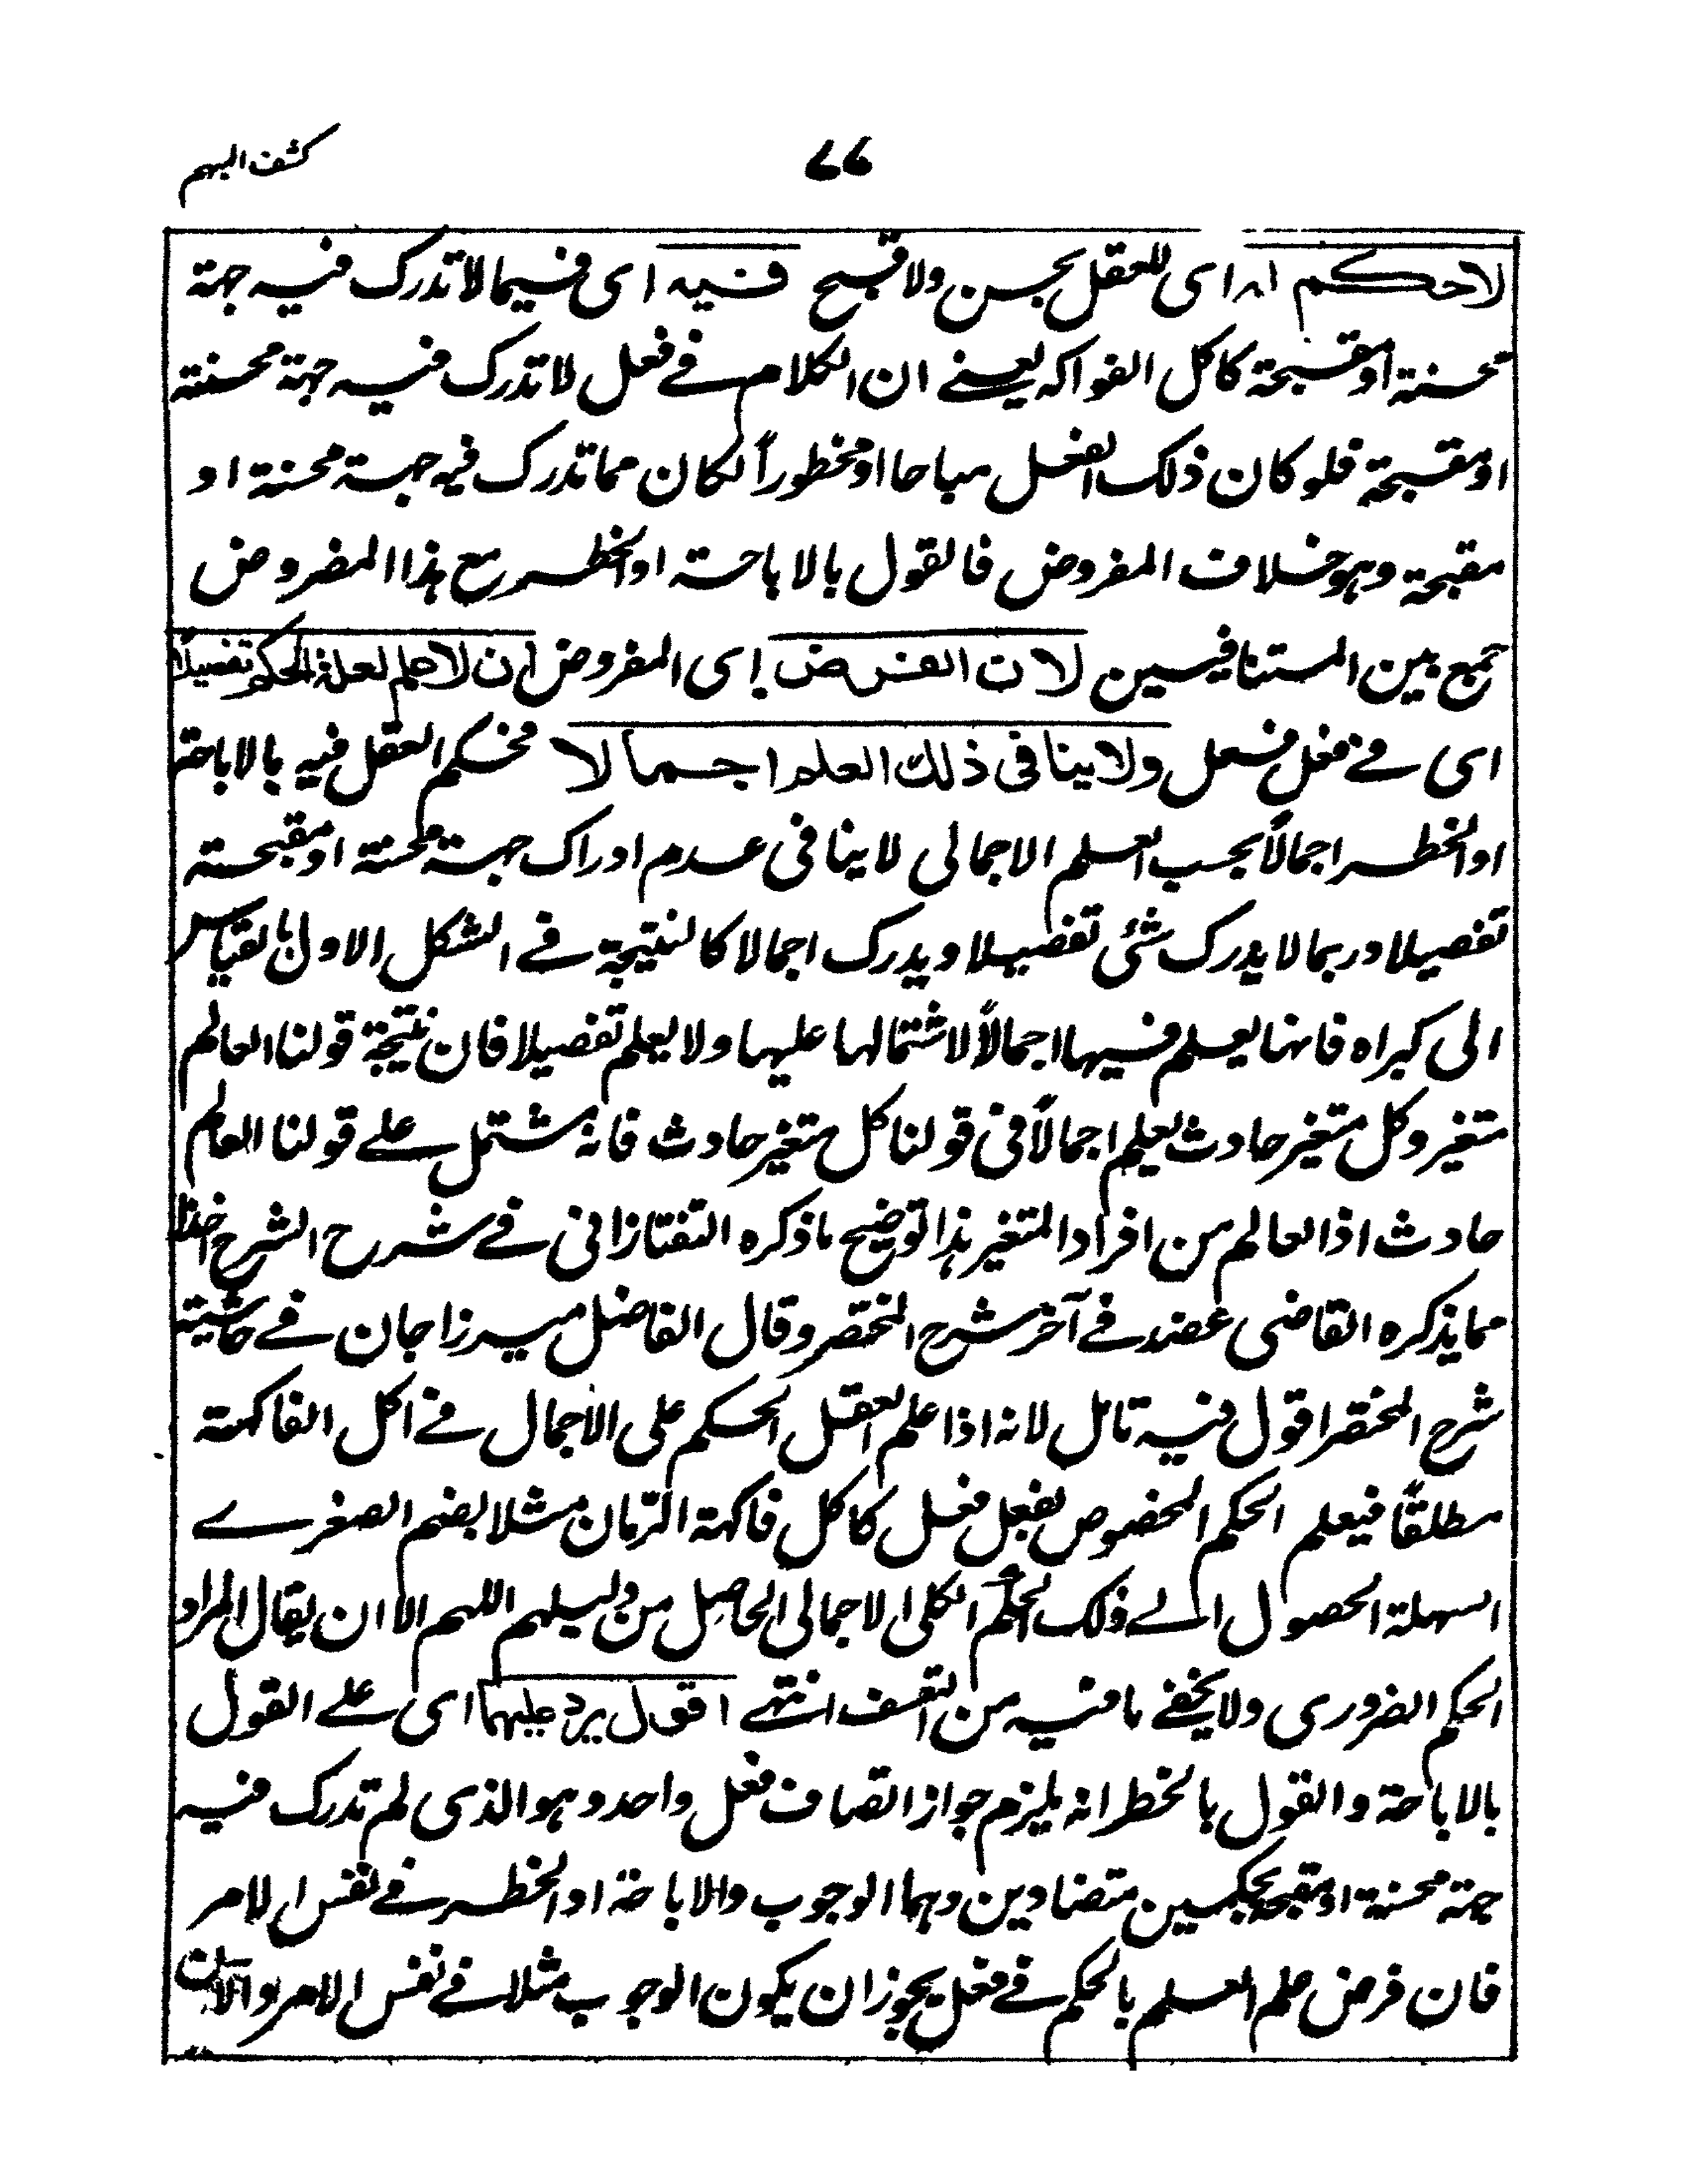 كشف المبهم
٧٧
لا حكم له اى للعقل بحسن ولا قبح فيه اى فيما لا تدرك فيه جهة
محسنة او مقبحة كاكل الفواكه يعنے ان الكلام فے فعل لا تدرك فيه جهة محسنة
او مقبحة فلو كان ذلك الفعل مباحا او مخطوراً لكان مما تدرك فيه جهة محسنة او
مقبحة وهو خلاف المفروض فالقول بالاباحة او الخطر مع هذا المفروض
جمع بين المتنافيين لان الفرض اى المفروض ان لا علم لعلة الحكم تفصيلا
اى فے فعل فعل ولا ينافى ذلك العلم اجمالا فحكم العقل فيه بالاباحة
او الخطر اجمالاً بحسب العلم الاجمالى لا ينافى عدم ادراك جهة محسنة او مقبحة
تفصيلا وربما لا يدرك شئى تفصيلا ويدرك اجمالا كالنتيجة فے الشكل الاول بالقياس
الى كبراه فانها يعلم فيها اجمالاً لاشتمالها عليها ولا يعلم تفصيلا فان نتيجة قولنا العالم
متغير وكل متغير حادث يعلم اجمالاً فى قولنا كل متغير حادث فانه مشتمل علے قولنا العالم
حادث اذ العالم من افراد المتغير هذا توضيح ما ذكره التفتازانى فے شرح الشرح اخذا
مما يذكره القاضى عضد فے آخر شرح المختصر وقال الفاضل ميرزا جان فے حاشية
شرح المختصر اقول فيه تامل لانه اذا علم العقل الحكم على الاجمال فے اكل الفاكهة
مطلقاً فيعلم الحكم المخصوص بفعل فعل كاكل فاكهة الرّمان مثلا بضم الصغرے
السهلة الحصول الے ذلك الحكم الكلى الاجمالى الحاصل من دليلهم اللهم الا ان يقال المراد
الحكم الضرورى ولا يخفے ما فيه من التعسف انتهے اقول يرد عليهما اى علے القول
بالاباحة والقول بالخطر انه يلزم جواز اتصاف فعل واحد وهو الذى لم تدرك فيه
جهة محسنة او مقبحة بحكمين متضادين وهما الوجوب والاباحة او الخطر فے نفس الامر
فان فرض علم العلم بالحكم فے فعل يجوز ان يكون الوجوب مثلا فے نفس الامر و